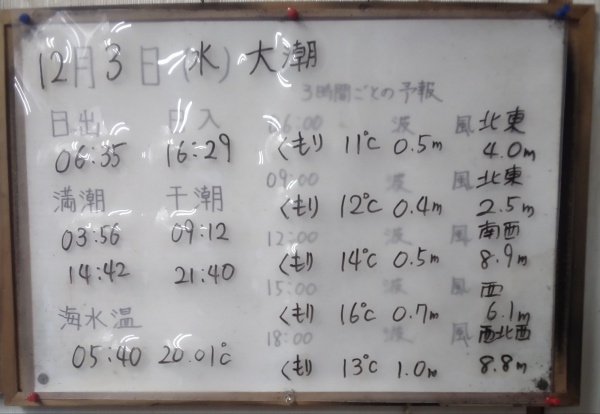 12月3日(水) 大潮
3時間ごとの予報
日出 日入
06:35 16:29
満潮 干潮
03:56 09:12
14:42 21:40
海水温
05:40 20.01℃
06:00 波 風 北東
くもり 11℃ 0.5m 4.0m
09:00 波 風 北東
くもり 12℃ 0.4m 2.5m
12:00 波 風 南西
くもり 14℃ 0.5m 8.9m
15:00 波 風 西
くもり 16℃ 0.7m 6.1m
18:00 波 風 西北西
くもり 13℃ 1.0m 8.8m